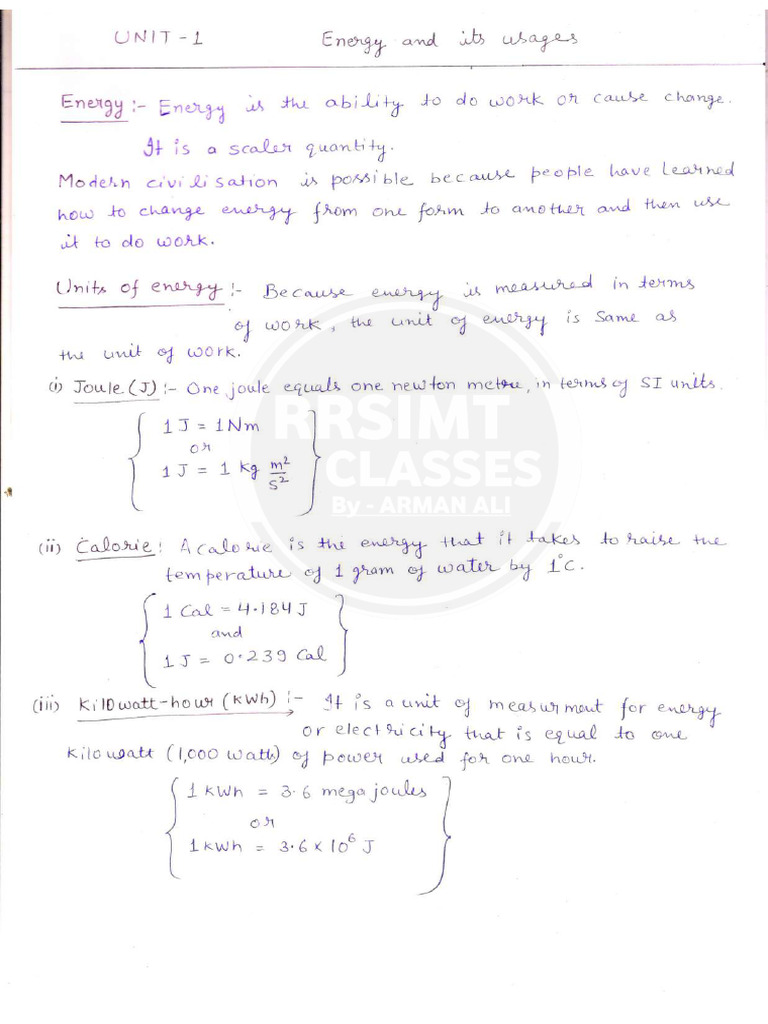 UNIT-1 Energy and its usages
Energy :- Energy is the ability to do work or cause change.
It is a scaler quantity.
Modern civilisation is possible because people have learned
how to change energy from one form to another and then use
it to do work.
Units of energy :- Because energy is measured in terms
of work, the unit of energy is same as
the unit of work.
(i) Joule (J) :- One joule equals one newton metre, in terms of SI units.
1 J = 1 Nm
or
1 J = 1 Kg m²/s²
RRSIMT
CLASSES
By - ARMAN ALI
(ii) Calorie : A calorie is the energy that it takes to raise the
temperature of 1 gram of water by 1°C.
1 Cal = 4.184 J
and
1 J = 0.239 Cal
(iii) Kilowatt-hour (KWh) :- It is a unit of measurment for energy
or electricity that is equal to one
kilowatt (1,000 watts) of power used for one hour.
1 KWh = 3.6 mega joules
or
1 KWh = 3.6 x 10⁶ J